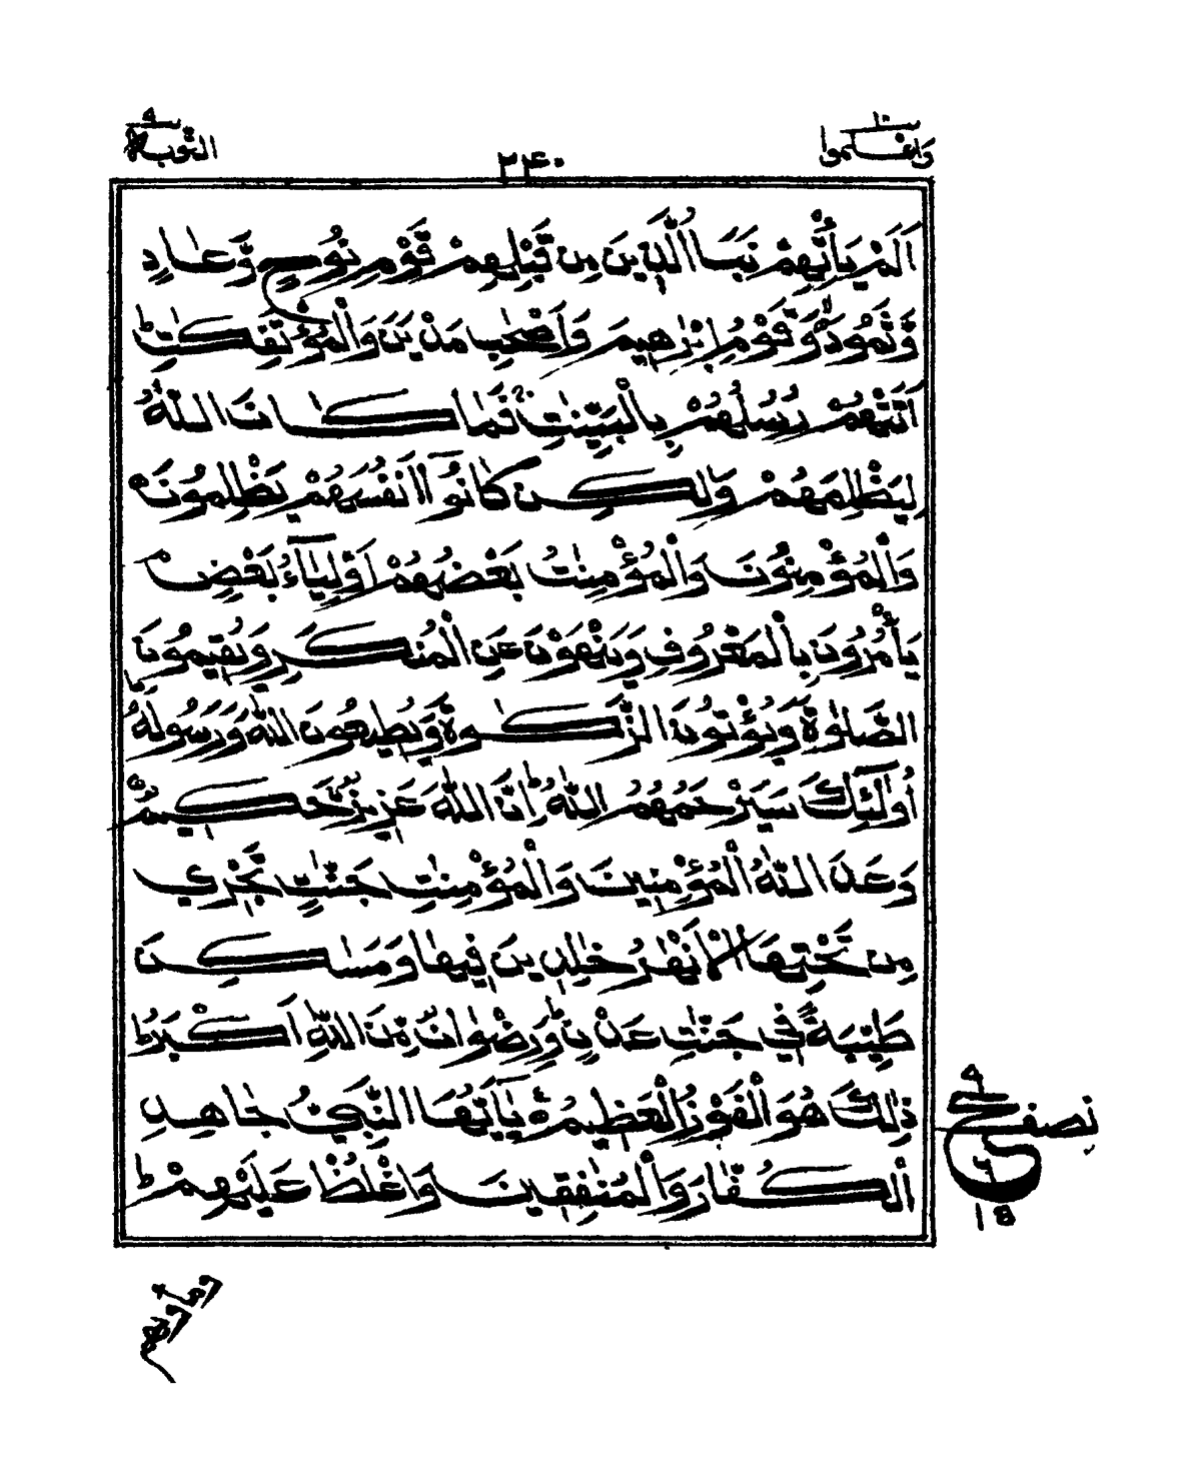 واعلموا ١٠
٢٤٠
التوبة ٩
اَلَمْ يَأْتِهِمْ نَبَاُ الَّذِيْنَ مِنْ قَبْلِهِمْ قَوْمِ نُوْحٍ وَّعَادٍ
وَّثَمُوْدَ وَقَوْمِ اِبْرٰهِيْمَ وَاَصْحٰبِ مَدْيَنَ وَالْمُؤْتَفِكٰتِ ط
اَتَتْهُمْ رُسُلُهُمْ بِالْبَيِّنٰتِ فَمَا كَانَ اللّٰهُ
لِيَظْلِمَهُمْ وَلٰكِنْ كَانُوْٓا اَنْفُسَهُمْ يَظْلِمُوْنَ ه
وَالْمُؤْمِنُوْنَ وَالْمُؤْمِنٰتُ بَعْضُهُمْ اَوْلِيَآءُ بَعْضٍ م
يَأْمُرُوْنَ بِالْمَعْرُوْفِ وَيَنْهَوْنَ عَنِ الْمُنْكَرِ وَيُقِيْمُوْنَ
الصَّلٰوةَ وَيُؤْتُوْنَ الزَّكٰوةَ وَيُطِيْعُوْنَ اللّٰهَ وَرَسُوْلَهٗ ط
اُولٰٓئِكَ سَيَرْحَمُهُمُ اللّٰهُ ط اِنَّ اللّٰهَ عَزِيْزٌ حَكِيْمٌ ه
وَعَدَ اللّٰهُ الْمُؤْمِنِيْنَ وَالْمُؤْمِنٰتِ جَنّٰتٍ تَجْرِيْ
مِنْ تَحْتِهَا الْاَنْهٰرُ خٰلِدِيْنَ فِيْهَا وَمَسٰكِنَ
طَيِّبَةً فِيْ جَنّٰتِ عَدْنٍ ط وَرِضْوَانٌ مِّنَ اللّٰهِ اَكْبَرُ ط
ذٰلِكَ هُوَ الْفَوْزُ الْعَظِيْمُ ه يٰٓاَيُّهَا النَّبِيُّ جَاهِدِ
الْكُفَّارَ وَالْمُنٰفِقِيْنَ وَاغْلُظْ عَلَيْهِمْ ط
نصف
٩
ع
٦
١٥
وماوىهم